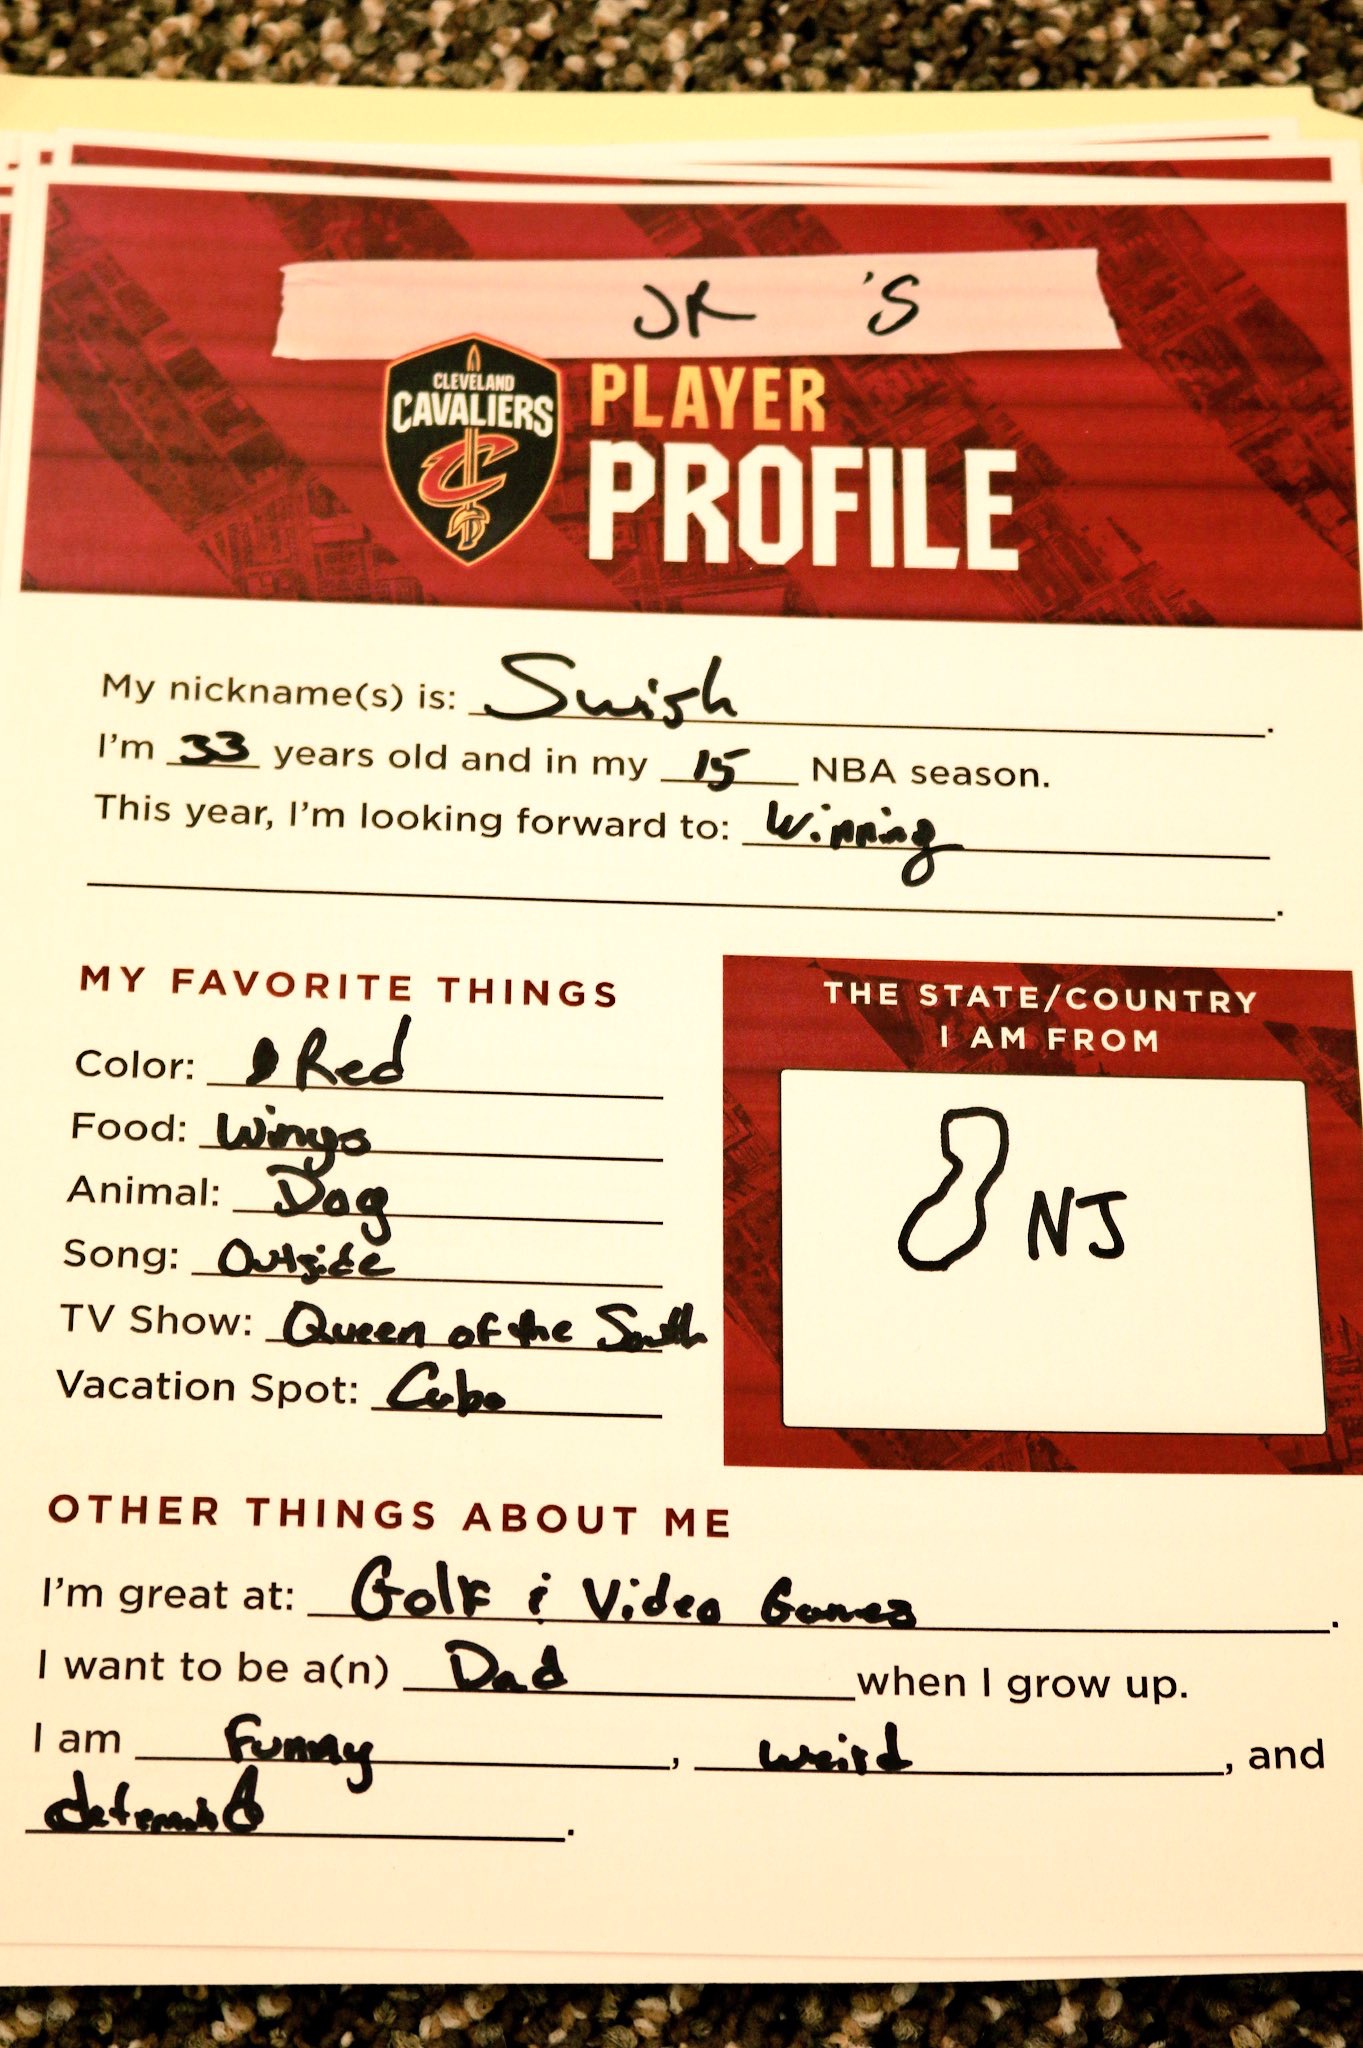 JR 'S
CLEVELAND
CAVALIERS
PLAYER
PROFILE
My nickname(s) is: Swish.
I'm 33 years old and in my 15 NBA season.
This year, I'm looking forward to: Winning
.
MY FAVORITE THINGS
Color: Red
Food: Wings
Animal: Dog
Song: Outside
TV Show: Queen of the South
Vacation Spot: Cabo
THE STATE/COUNTRY
I AM FROM
NJ
OTHER THINGS ABOUT ME
I'm great at: Golf & Video Games.
I want to be a(n) Dad when I grow up.
I am Funny, weird, and
.